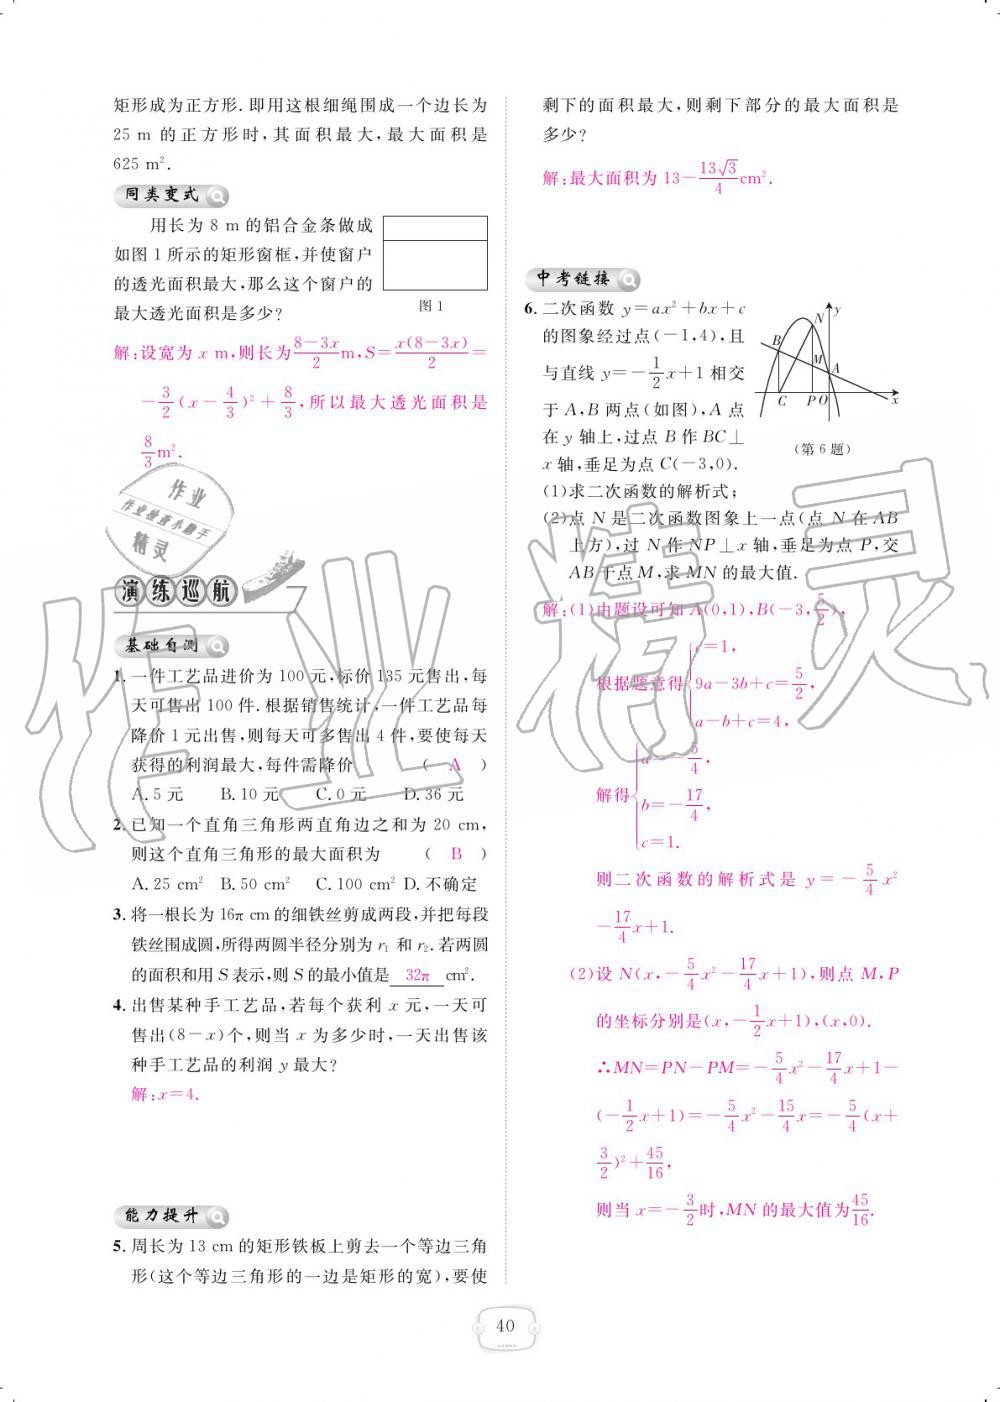 矩形成为正方形.即用这根细绳围成一个边长为
25 m 的正方形时,其面积最大,最大面积是
625 m².
同类变式
用长为 8 m 的铝合金条做成
如图 1 所示的矩形窗框,并使窗户
的透光面积最大,那么这个窗户的
最大透光面积是多少?
图 1
解:设宽为 x m,则长为(8-3x)/2 m,S=x(8-3x)/2=
-3/2(x-4/3)²+8/3,所以最大透光面积是
8/3 m².
作业
作业检查小助手
精灵
演练巡航
基础自测
1. 一件工艺品进价为 100 元,标价 135 元售出,每
天可售出 100 件.根据销售统计,一件工艺品每
降价 1 元出售,则每天可多售出 4 件,要使每天
获得的利润最大,每件需降价 ( A )
A. 5 元 B. 10 元 C. 0 元 D. 36 元
2. 已知一个直角三角形两直角边之和为 20 cm,
则这个直角三角形的最大面积为 ( B )
A. 25 cm² B. 50 cm² C. 100 cm² D. 不确定
3. 将一根长为 16π cm 的细铁丝剪成两段,并把每段
铁丝围成圆,所得两圆半径分别为 r₁ 和 r₂.若两圆
的面积和用 S 表示,则 S 的最小值是 32π cm².
4. 出售某种手工艺品,若每个获利 x 元,一天可
售出(8-x)个,则当 x 为多少时,一天出售该
种手工艺品的利润 y 最大?
解:x=4.
能力提升
5. 周长为 13 cm 的矩形铁板上剪去一个等边三角
形(这个等边三角形的一边是矩形的宽),要使
剩下的面积最大,则剩下部分的最大面积是
多少?
解:最大面积为 13-13√3/4 cm².
中考链接
6. 二次函数 y=ax²+bx+c
的图象经过点(-1,4),且
与直线 y=-1/2x+1 相交
于 A,B 两点(如图),A 点
在 y 轴上,过点 B 作 BC⊥
x 轴,垂足为点 C(-3,0).
y
N
B
M
A
C P O x
(第 6 题)
(1)求二次函数的解析式;
(2)点 N 是二次函数图象上一点(点 N 在 AB
上方),过 N 作 NP⊥x 轴,垂足为点 P,交
AB 于点 M,求 MN 的最大值.
解:(1)由题设可知 A(0,1),B(-3,5/2),
根据题意得{c=1,
9a-3b+c=5/2,
a-b+c=4,
解得{a=-5/4,
b=-17/4,
c=1.
则二次函数的解析式是 y=-5/4x²
-17/4x+1.
(2)设 N(x,-5/4x²-17/4x+1),则点 M,P
的坐标分别是(x,-1/2x+1),(x,0).
∴MN=PN-PM=-5/4x²-17/4x+1-
(-1/2x+1)=-5/4x²-15/4x=-5/4(x+
3/2)²+45/16,
则当 x=-3/2时,MN 的最大值为45/16.
作业精灵
40